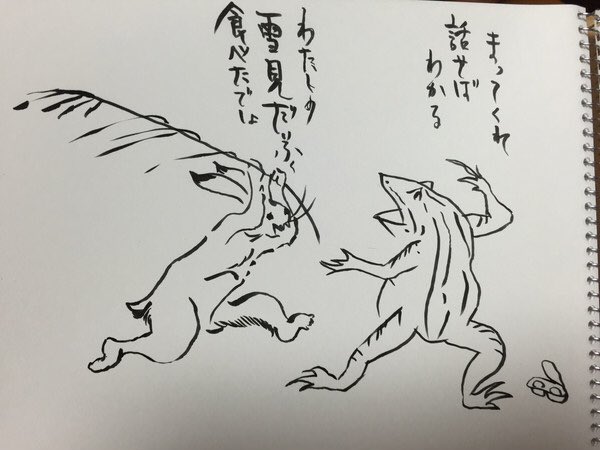 まってくれ
話せば
わかる
わたしの
雪見だいふく
食べたでしょ